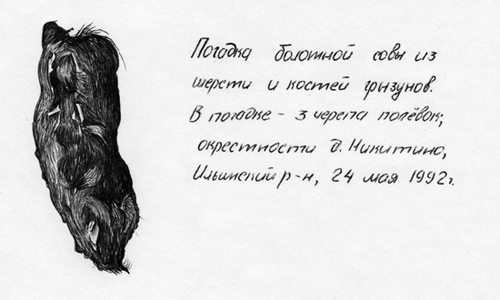 Погадка болотной совы из
шерсти и костей грызунов.
В погадке - 3 черепа полёвок;
окрестности д. Никитино,
Ильинский р-н, 24 мая 1992г.